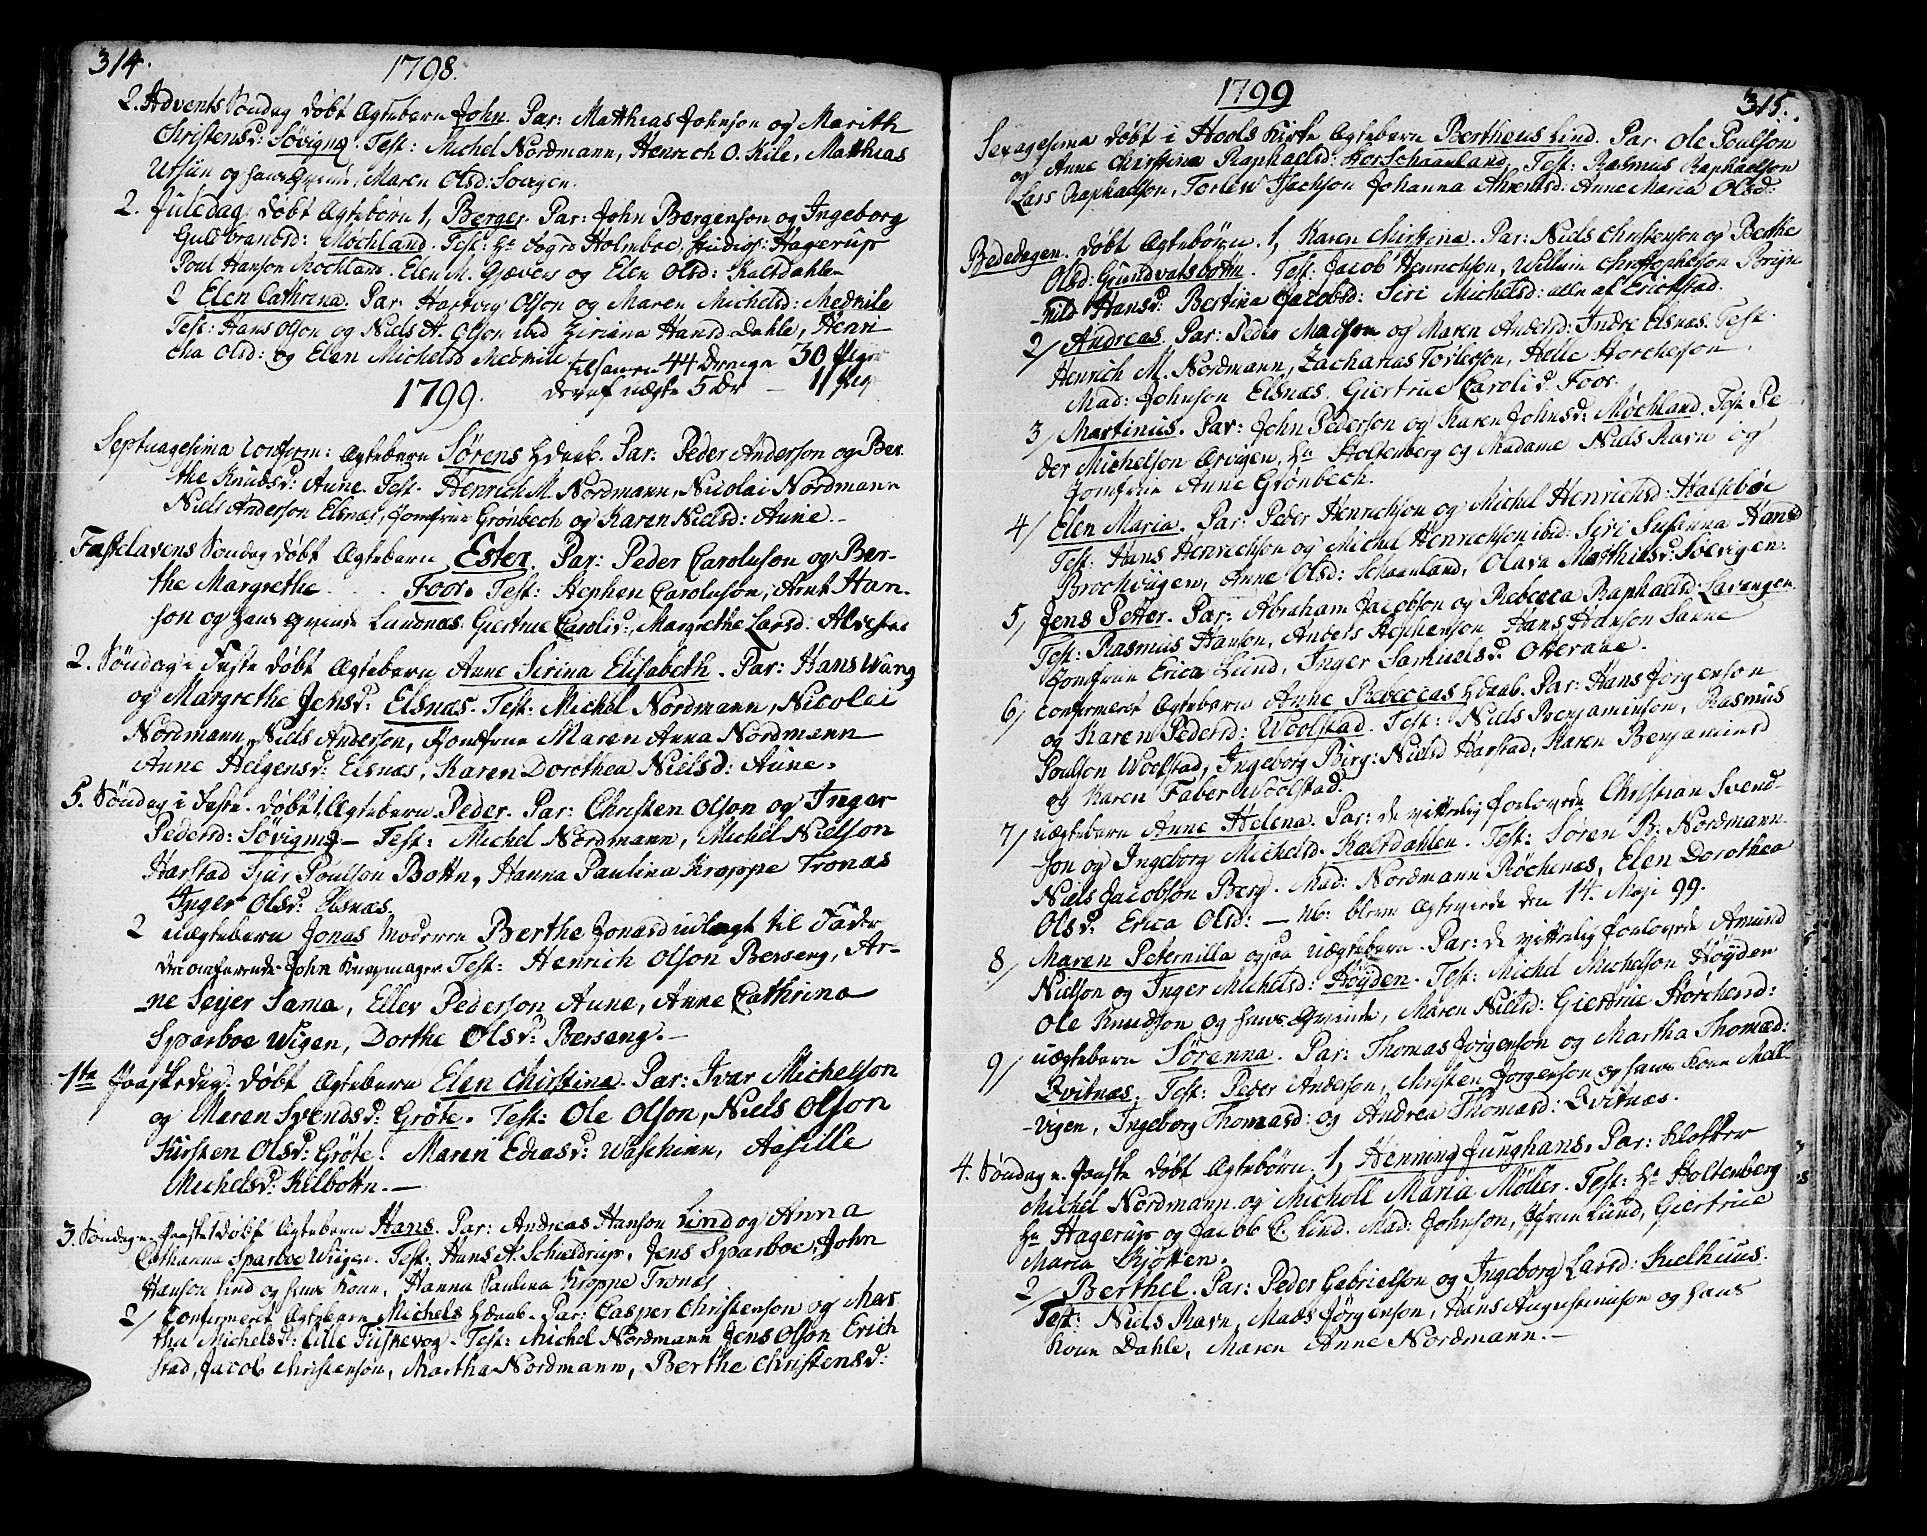 314.
1798.
2. Advents Søndag døbt Ægtebarn John. Par: Matthias Johnson og Marith
Christensd: Søvigen. Test: Michel Nordmann, Henrich O. Kile, Matthias
og hans Qvinde, Maren Olsd: Sørvigen.
2. Juledag døbt Ægtebørn 1, Berger. Par: John Bergerson og Ingeborg
Guldbrandsd: Møchland. Test: Hr Holmboe, Studios: Hagerup
Poul Hanson Mochland. Elen M. Gjævers og Elen Olsd: Kaltdahlen
2 Elen Cathrina. Par: Hartvig Olson og Maren Michelsd: Medkile
Test: Hans Olson og Niels A. Olson ibid Zirena Hansd Dahle, Henri
cha Olsd: og Elen Michelsd Medkile tilsamen 44 Drenge 30 Piger
deraf uægte 5 Dr — 11 Pig
1799.
Septuagesima confirm: Ægtebarn Sørens Hdaab. Par: Peder Anderson og Ber
the Knudsd: Aune. Test. Henrich M. Nordmann, Nicolai Nordmann
Niels Anderson Elsnæs, Jomfrue Grønbech og Karen Nielsd: Aune.—
Fastelavens Søndag døbt Ægtebarn Ester. Par: Peder Caroluson og Ber-
the Margrethe Foor. Test: Stephen Caroluson, Arnt Han-
son og hans Qvinde Lundnæs Giertrue Carolid:, Margrethe Larsd:
2. Søndag i Faste døbt Ægtebarn Anne Sirina Elisabeth. Par: Hans Wang
og Margrethe Jensd: Elsnæs. Test: Michel Nordmann, Nicolai
Nordmann, Niels Anderson, Jomfrue Maren Anna Nordmann
Anne Helgensd: Elsnæs, Karen Dorothea Nielsd: Aune.
5. Søndag i Faste. døbt 1, Ægtebarn. Peder. Par: Christen Olson og Inger
Pedersd: Søvigen— Test: Michel Nordmann, Michel Nielson
Harstad Sjur Poulson Bottn, Hanna Paulina Kroppe Tronæs
Inger Olsd: Elsnæs.
2 uægtebarn Jonas Moderen Berthe Jonasd udlagt til Fader
den omførende John Test: Henrich Olson Berseng, Ar-
ne Sejer Sama, Eller Pederson Aune, Anne Cathrina
Sparboe Wigen, Dorthe Olsd: Berseng.—
1te Paaskedag døbt Ægtebarn Elen Christina. Par: Ivar Michelson
og Maren Svendsd: Grøte. Test: Ole Olson, Niels Olson
Kirsten Olsd: Grøte. Maren Ediasd: Waschinn, Aasille
Michelsd: Kilbottn.—
3. Søndag e. Paaske 1 døbt Ægtebarn Hans. Par: Andreas Hanson Lind og Anna
Catharina Sparboe Wigen. Test: Hans A. Schieldrup, Jens Sparboe, John
Hanson Lind og hans Kone, Hanna Paulina Kroppe Tronæs.
2/ Confirmeret Ægtebarn Michels Hdaab. Par: Casper Christenson og Mar
tha Michelsd: Lille Fiskevog. Test: Michel Nordmann Jens Olson Erich
stad, Jacob Christenson, Martha Nordmann, Berthe Christensd:
1799
315.
Sexagesima døbt i Hools Kirke Ægtebarn Bertheus Lind. Par: Ole Poulson
og Anne Christina Raphaelsd: Horschaarland, Test: Rasmus Raphaelson
Lars Raphaelson, Torlew Isachson Johanna Ahrentsd: Anne Maria Olsd:
Bededagen. døbt Ægtebørn. 1, Karen Christina. Par: Niels Christenson og Berthe
Olsd: Gundvatsbottn. Test: Jacob Henrichson, Willum Christopherson Brijn
-hild Hansd: Bertina Jacobsd: Siri Michelsd: alle af Erichstad.
2/ Andreas. Par: Peder Madson og Maren Andersd: Indre Elsnæs. Test:
Henrich M. Nordmann, Zacharias Torleson, Helle Horcheson
Mad: Johnson Elsnæs, Giertrue Carolid: Foor.
3/ Martinus. Par: John Pederson og Karen Johnsd: Møchland. Test. Pe
der Michelson Ervigen, Hr Stoltenberg og Madame Niels Ravn og
Jomfrue Anne Grønbech.
4/ Elen Maria. Par: Peder Henrichson og Michel Henrichsd: Halsebøe
Test: Hans Henrichson og Michel Henrichson ibid: Siri Susanna Hansd
Brochvigen, Anne Olsd: Schaanland, Olava Mathisd: Sørvigen.
5, Jens Petter. Par: Abraham Jacobson og Rebecca Raphaelsd Lavangen
Test: Rasmus Hanson, Anders Stephenson Hans Hanson Sanne
Jomfrue Erica Lund, Inger Samuelsd: Otteraae.
6, confirmeret Ægtebarn Anne Rebeccas Hdaab. Par: Hans Jørgenson
og Karen Pedersd: Woolstad. Test: Niels Benjaminson, Rasmus
Poulson Woolstad, Ingeborg Birg: Nielsd Harstad, Karen Benjaminsd
og Karen Faber Woolstad.
7/ uægtebarn Anne Helena. Par: de vitterlig forlovede Christian Svend-
son og Ingeborg Michelsd. Kaltdahlen. Test: Søren B: Nordmann
Niels Jacobson Berg. Mad: Nordmann Røchenæs, Elen Dorothea
Olsd: Erica Olsd: — Nb: bleve Ægteviede den 14. Maji 99.
8/ Maren Peternilla ogsaa uægtebarn. Par: de vitterlig forlovede Amund
Nielson og Inger Michelsd: Høyden. Test: Michel Michelson Høyden
Ole Knudson og hans Qvinde, Maren Nielsd: Giertrue Storchensd:
9/ uægtebarn Sørenna. Par: Thomas Jørgenson og Martha Thomæd:
Qvitnæs. Test: Peder Anderson, Christen Jørgenson og hans Kone Mell-
-vigen, Ingeborg Thomasd: og Andrea Thomasd: Qvitnæs.
4. Søndag e. Paaske døbt Ægtebørn. 1, Henning Junghans. Par: Klokker
Michel Nordmann og Micholl Maria Møller. Test: Hr Stoltenberg
Hr Hagerup og Jacob C. Lind. Mad: Johnson, Jfrue Lund, Giertrue
Maria Kjøtten.
2/ Berthel. Par: Peder Gabrielson og Ingeborg Larsd: Kielhuus.
Test: Niels Ravn, Mads Jørgenson, Hans Augustinuson og hans
Kone Dahle, Maren Anne Nordmann.—